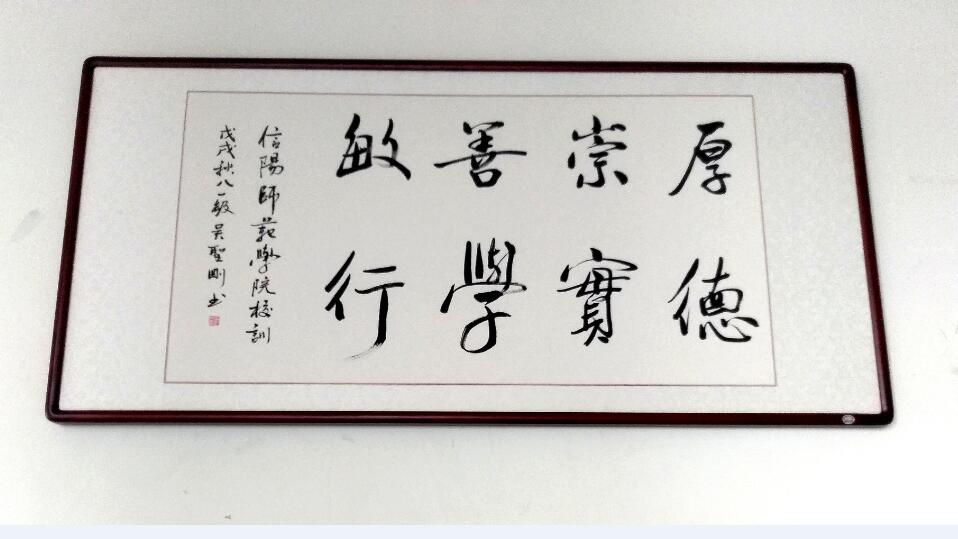 厚德
崇實
善學
敏行
信陽師範學院校訓
戊戌秋八一級吳聖剛書